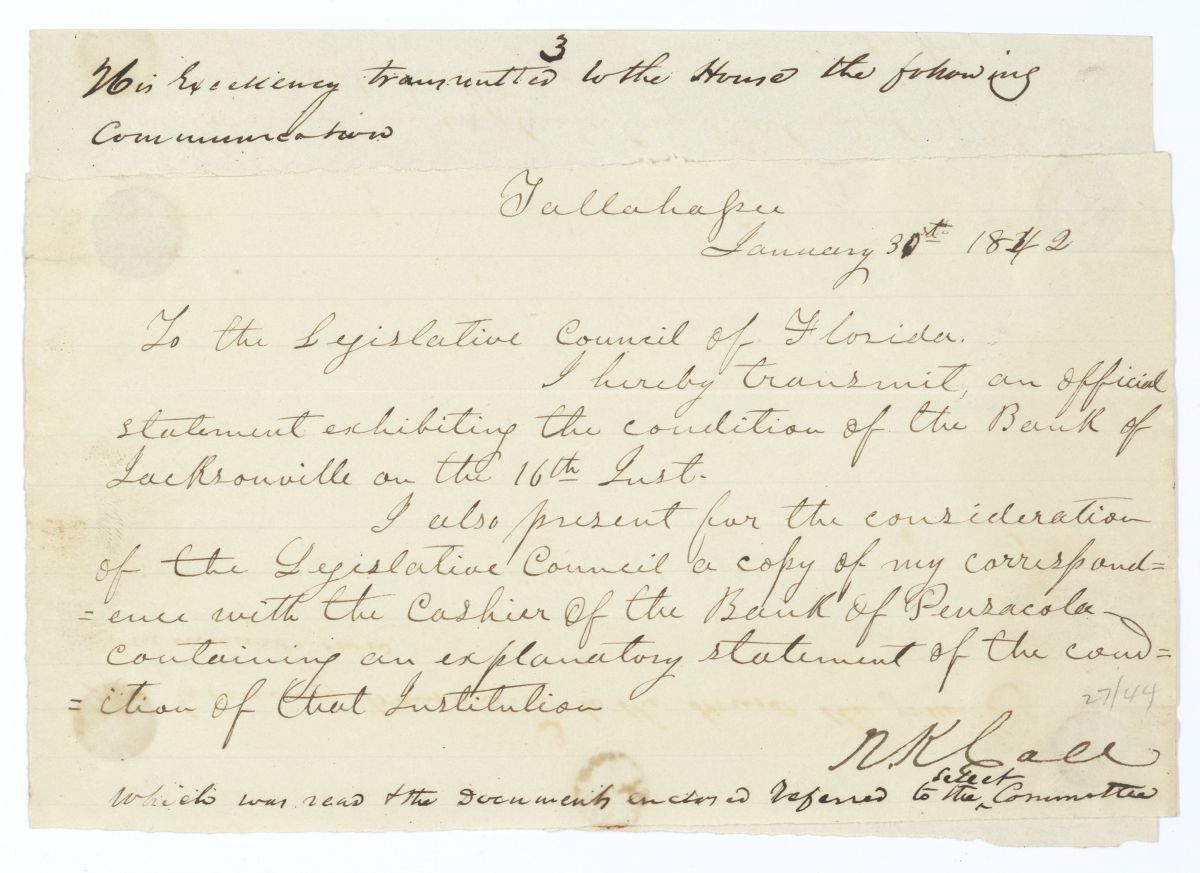 3
His Excellency transmitted to the House the following
Communication
Tallahassee
January 31st 1842
To the Legislative Council of Florida.
I hereby transmit, an official
statement exhibiting the condition of the Bank of
Jacksonville on the 16th Inst.
I also present for the consideration
of the Legislative Council a copy of my correspond=
=ence with the Cashier of the Bank of Pensacola
containing an explanatory statement of the cond=
=ition of that Institution
27/44
R K Call
which was read & the Documents enclosed referred to the select Committee